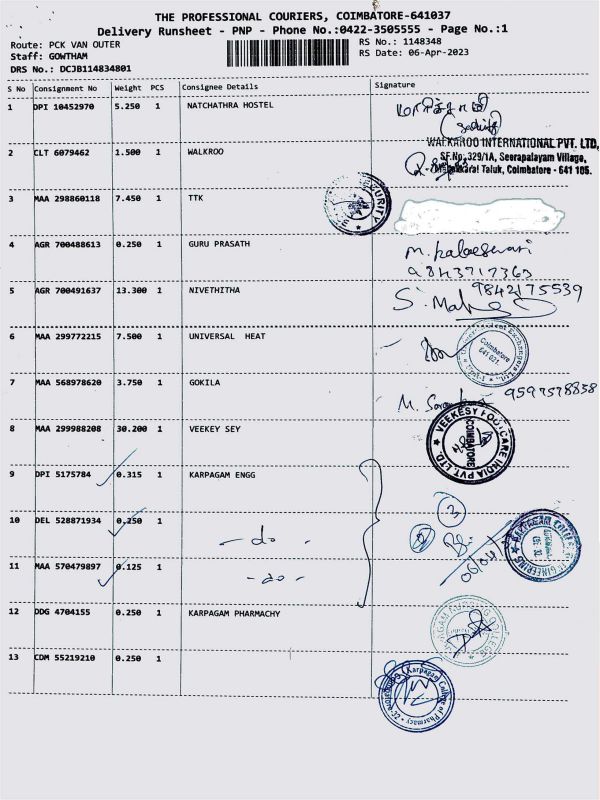 THE PROFESSIONAL COURIERS, COIMBATORE-641037
Delivery Runsheet - PNP - Phone No.:0422-3505555 - Page No.:1
Route: PCK VAN OUTER RS No.: 1148348
Staff: GOWTHAM RS Date: 06-Apr-2023
DRS No.: DCJB114834801
S No Consignment No Weight PCS Consignee Details Signature
1 DPI 10452970 5.250 1 NATCHATHRA HOSTEL
WALKAROO INTERNATIONAL PVT. LTD.
2 CLT 6079462 1.500 1 WALKROO SF.No.329/1A, Seerapalayam Village,
Taluk, Coimbatore - 641 105.
3 MAA 298860118 7.450 1 TTK SECURITY
4 AGR 700488613 0.250 1 GURU PRASATH
9843717363
5 AGR 700491637 13.300 1 NIVETHITHA 9842175539
6 MAA 299772215 7.500 1 UNIVERSAL HEAT
Coimbatore
641 021.
7 MAA 568978620 3.750 1 GOKILA
9597578858
8 MAA 299988208 30.200 1 VEEKEY SEY
VEEKESY FOOTCARE INDIA PVT. LTD. COIMBATORE
9 DPI 5175784 0.315 1 KARPAGAM ENGG
10 DEL 528871934 0.250 1 - do -
11 MAA 570479897 0.125 1 - do -
12 DDG 4704155 0.250 1 KARPAGAM PHARMACHY
13 CDM 55219210 0.250 1
Karpagam College of Pharmacy